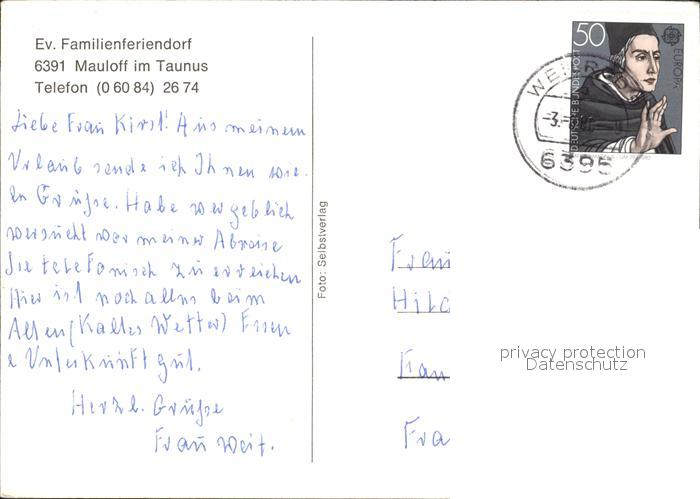 Ev. Familienferiendorf
6391 Mauloff im Taunus
Telefon (0 60 84) 26 74
Liebe Frau Kirst! Aus meinem
Urlaub sende ich Ihnen wie-
der Grüße. Habe vergeblich
versucht vor meiner Abreise
Sie telefonisch zu erreichen
Hier ist noch alles beim
Alten (Kaltes Wetter) Essen
& Unterkunft gut.
Herzl. Grüße
Frau Weit.
Foto: Selbstverlag
50
DEUTSCHE BUNDESPOST
EUROPA
WEIL
6395
Frau
Hild
Fran
Fra
privacy protection
Datenschutz